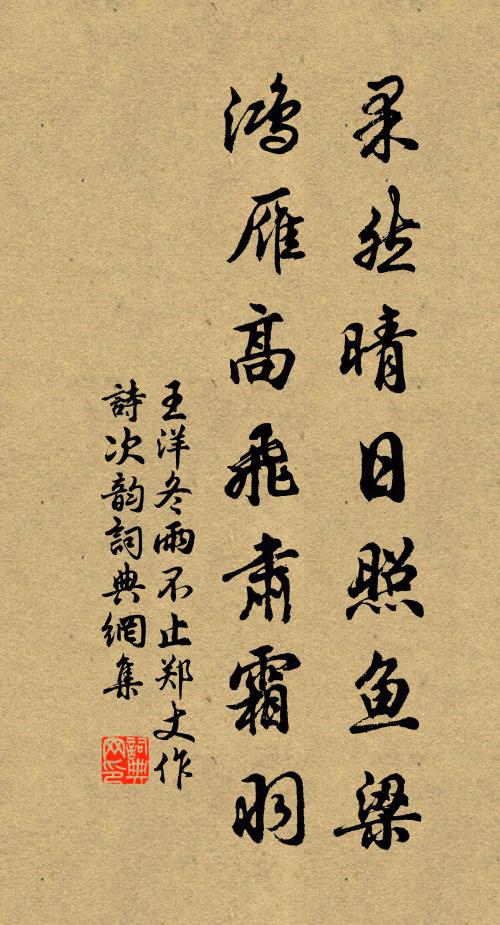 果然晴日照鱼梁
鸿雁高飛肃霜羽
王洋冬雨不止郑丈作
詩次韵詞典網集
詞典网印